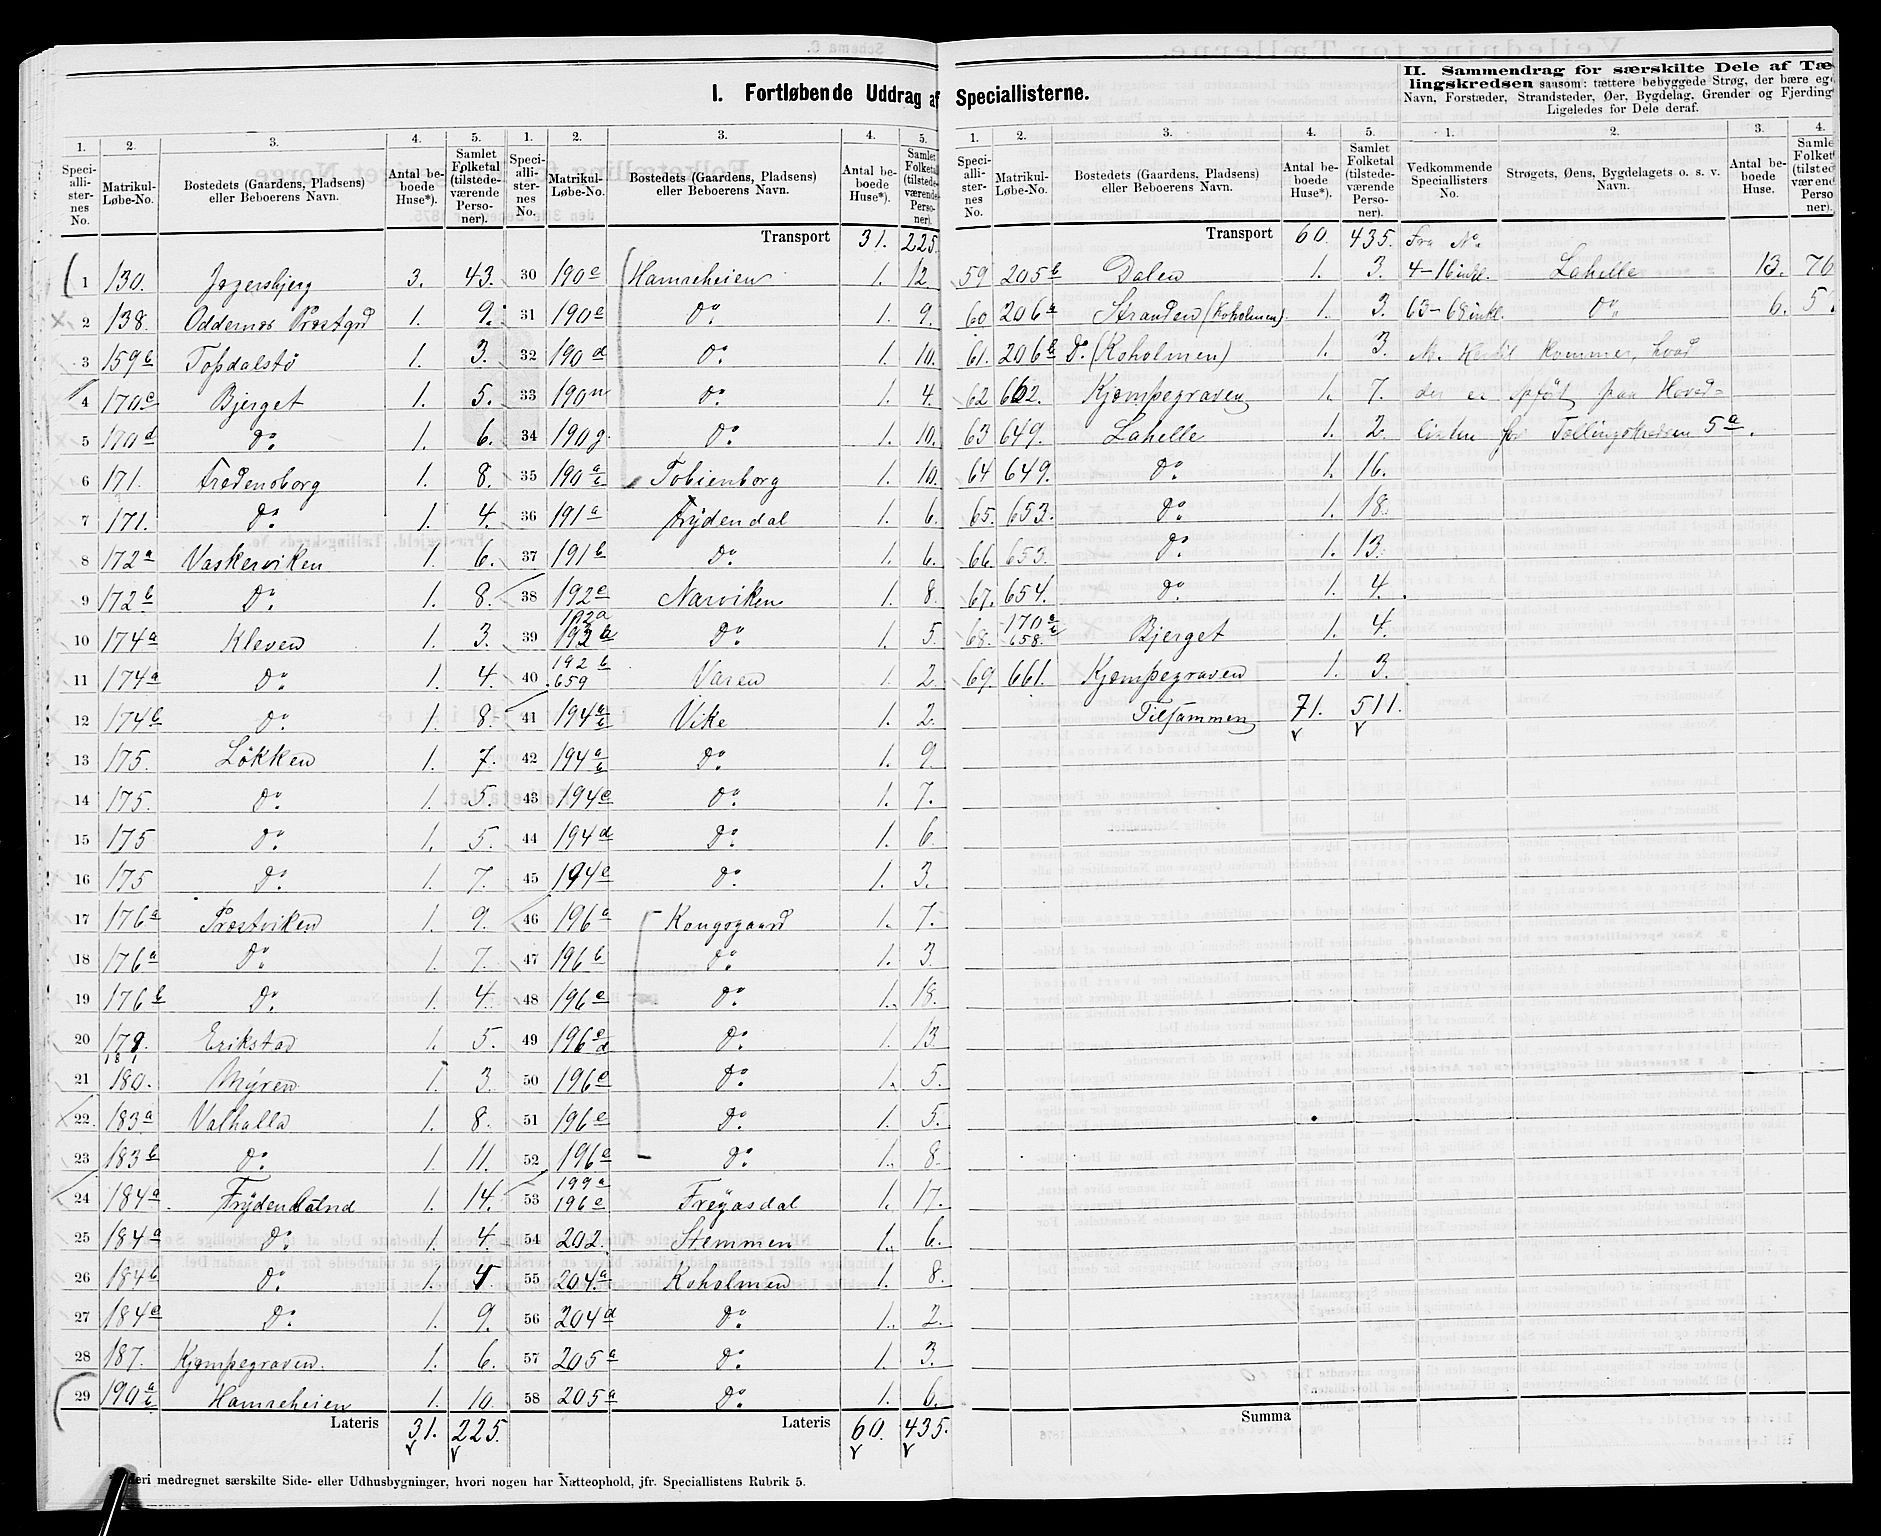 I. Fortløbende Uddrag af Speciallisterne.
II. Sammendrag for særskilte Dele af Tæ-
lingskredsen saasom: tættere bebyggede Strøg, der bære eg
Navn, Forstæder, Strandsteder, Øer, Bygdelag, Grender og Fjerding
Ligeledes for Dele deraf.
1. 2. 3. 4. 5.
Speciallisternes No. Matrikul-Løbe-No. Bostedets (Gaardens, Pladsens) eller Beboerens Navn. Antal beboede Huse*). Samlet Folketal (tilstedeværende Personer).
1 130. Jegersbjerg 3. 43.
2 138. Oddernes Præstgrd 1. 9.
3 159b Topdalstø 1. 3.
4 170c Bjerget 1. 5.
5 170d Do. 1. 6.
6 171. Fredensborg 1. 8.
7 171. Do. 1. 4.
8 172a Vaskerviken 1. 6.
9 172b Do. 1. 8.
10 174a Kleven 1. 3.
11 174a Do. 1. 4.
12 174b Do. 1. 8.
13 175. Løkken 1. 7.
14 175. Do. 1. 5.
15 175 Do. 1. 5.
16 175 Do. 1. 7.
17 176a Præstviken 1. 9.
18 176a Do. 1. 7.
19 176b Do. 1. 4.
20 179. 181 Erikstad 1. 5.
21 180. Myren 1. 3.
22 183a Valhalla 1. 8.
23 183b Do. 1. 11.
24 184a Frydenlund 1. 14.
25 184a Do. 1. 4.
26 184b Do. 1. 4.
27 184c Do. 1. 9.
28 187. Kjempegraven. 1. 6.
29 190a b Hamreheien 1. 10.
Lateris 31. 225.
1. 2. 3. 4. 5.
Speciallisternes No. Matrikul-Løbe-No. Bostedets (Gaardens, Pladsens) eller Beboerens Navn. Antal beboede Huse*). Samlet Folketal (tilstedeværende Personer).
Transport 31. 225.
30 190c Hamreheien 1. 12.
31 190c Do. 1. 9.
32 190d Do. 1. 10.
33 190n Do. 1. 4.
34 190g. Do. 1. 10.
35 190a b Tobienborg 1. 10.
36 191a Frydendal 1. 6.
37 191b Do. 1. 6.
38 192c Narviken 1. 8.
39 192a 193b Do. 1. 5.
40 192b 659 Varen 1. 2.
41 194a b Vike 1. 2.
42 194a b Do. 1. 9.
43 194c Do. 1. 7.
44 194d Do. 1. 6.
45 194e Do. 1. 3.
46 196a Kongsgaard 1. 7.
47 196b Do. 1. 3
48 196c Do. 1. 18.
49 196c d Do. 1. 13
50 196e Do. 1. 5.
51 196e Do. 1. 5.
52 196e Do. 1. 8.
53 199a 196e Freyasdal 1. 17.
54 202. Stemmen 1. 6.
55 204a Koholmen 1. 8.
56 204d Do. 1. 2.
57 205a Do. 1. 3.
58 205a Do. 1. 6.
Lateris 60. 435.
1. 2. 3. 4. 5.
Speciallisternes No. Matrikul-Løbe-No. Bostedets (Gaardens, Pladsens) eller Beboerens Navn. Antal beboede Huse*). Samlet Folketal (tilstedeværende Personer).
Transport 60. 435.
59 205b Dalen 1. 3.
60 206a Stranden (Koholmen) 1. 3.
61. 206b Do. (Koholmen) 1. 3.
62 662. Kjempegraven 1. 7.
63 649. Lahelle 1. 2.
64 649. Do. 1. 16.
65. 653. Do. 1. 18.
66. 653. Do. 1. 13.
67. 654. Do. 1. 4.
68. 170a b 658. Bjerget 1. 4.
69. 661. Kjempegraven 1. 3.
Tilsammen 71. 511.
Summa
1. 2. 3. 4.
Vedkommende Speciallisters No. Strøgets, Øens, Bygdelagets o. s. v. Navn. Antal beboede Huse.
Fra No.
4-16 inkl. Lahelle 13. 76
63-68 inkl. Do. 6. 5
kommer, hvad
der er opført paa Hoved-
listen for Tællingskredsen 5a.
medregnet særskilte Side- eller Udhusbygninger, hvori nogen har Natteophold, jfr. Speciallistens Rubrik 5.